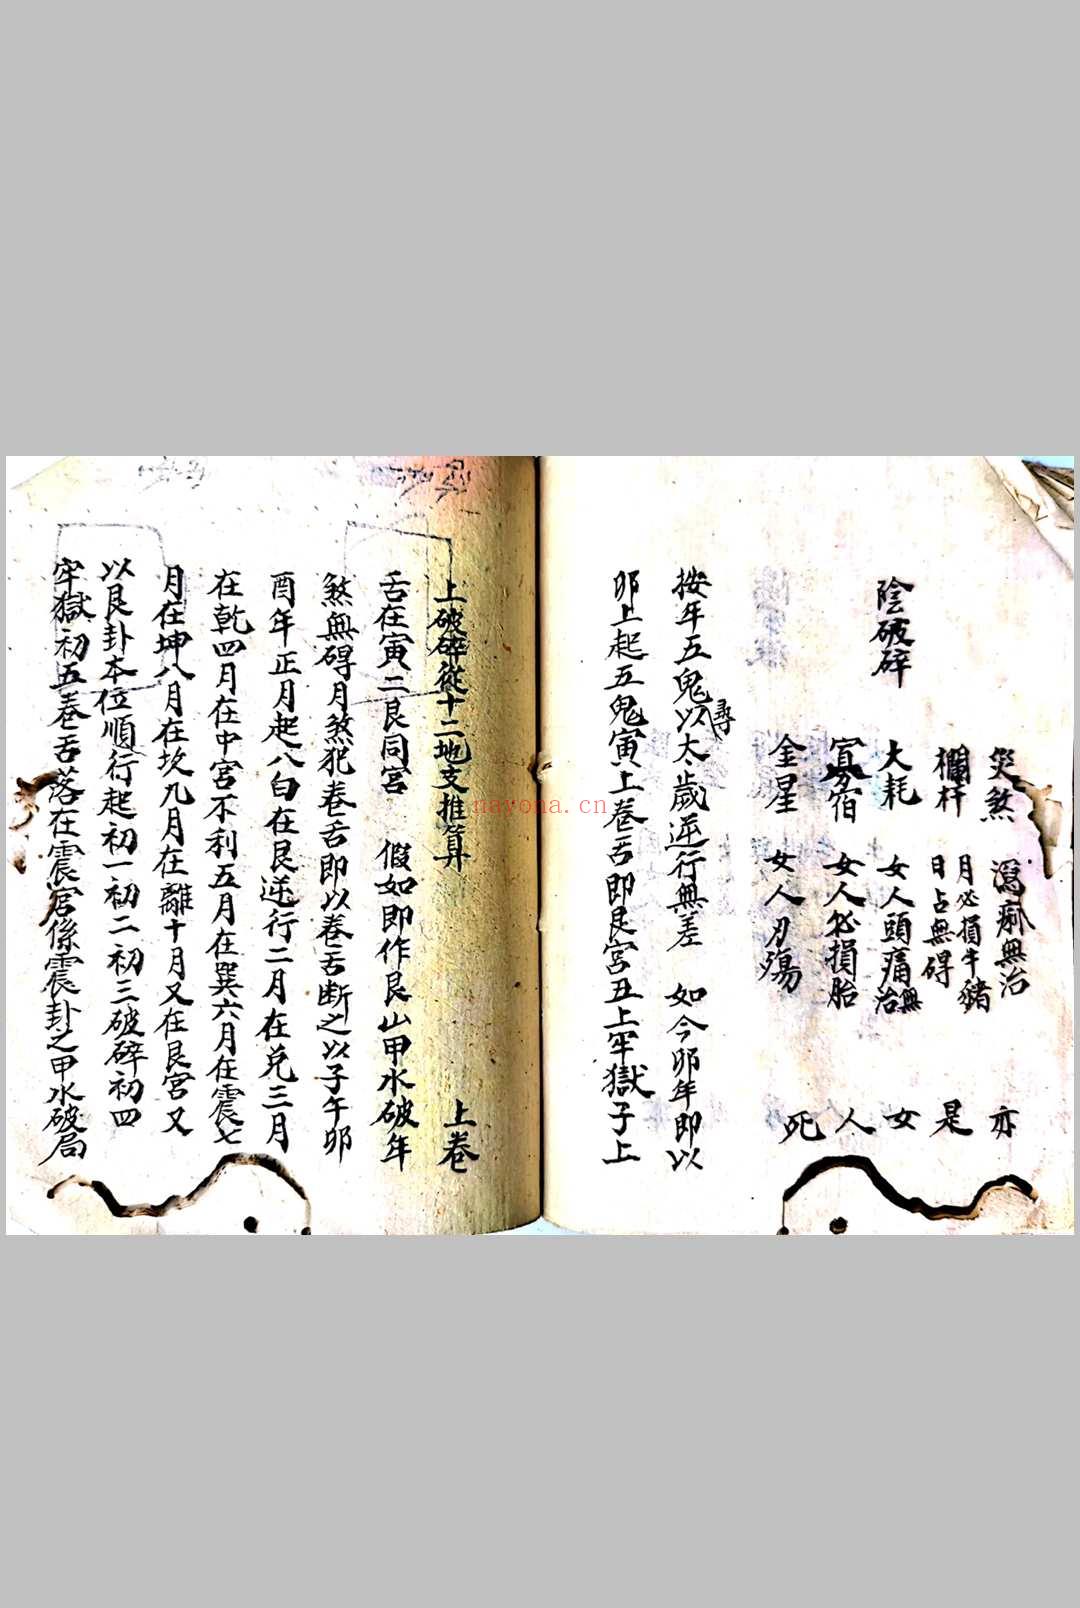 災煞 瀉痢無治 亦
欄杆 月必損牛豬 是
日占無碍
大耗 女人頭痛無治 女
陰破碎
寡宿 女人必損胎 人
金星 女人刀殤 死
按年五鬼以尋太歲逆行無差 如今卯年即以
卯上起五鬼寅上卷舌即艮宮丑上牢獄子上
上破碎從十二地支推算 上卷
舌在寅二艮同宮 假如即作艮山甲水破年
煞無碍月煞犯卷舌即以卷舌断之以子午卯
酉年正月起八白在艮逆行二月在兌三月
在乾四月在中宮不利五月在巽六月在震七
月在坤八月在坎九月在離十月又在艮宮又
以艮卦本位順行起初一初二初三破碎初四
牢獄初五卷舌落在震宮係震卦之甲水破局
nayona.cn